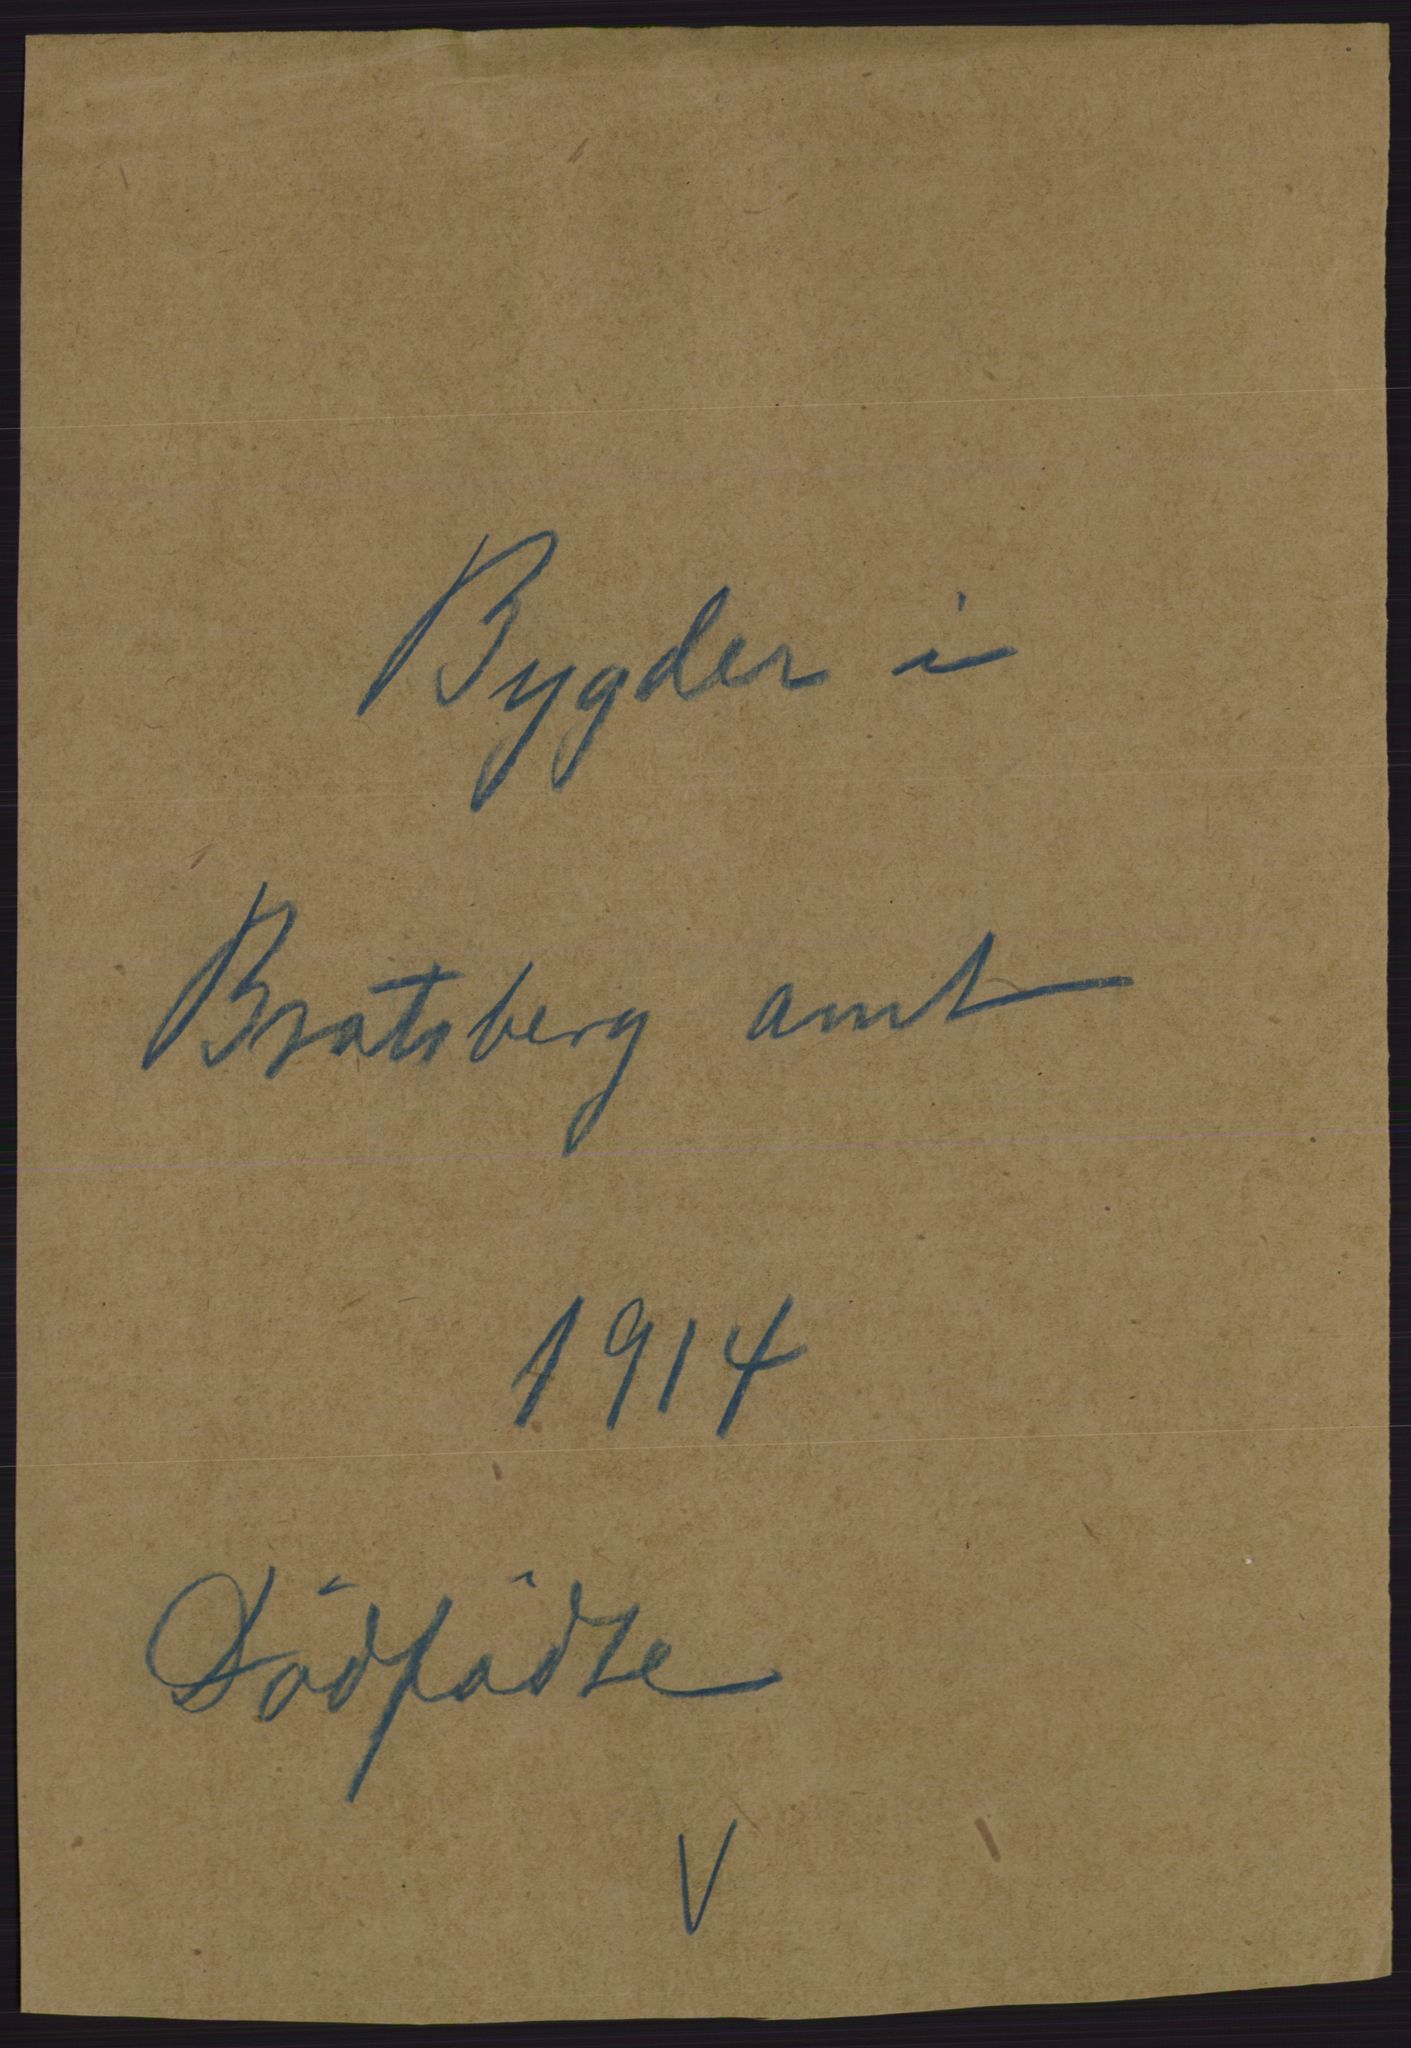 Bygder i
Bratsberg amt
1914
Dödfödte
V